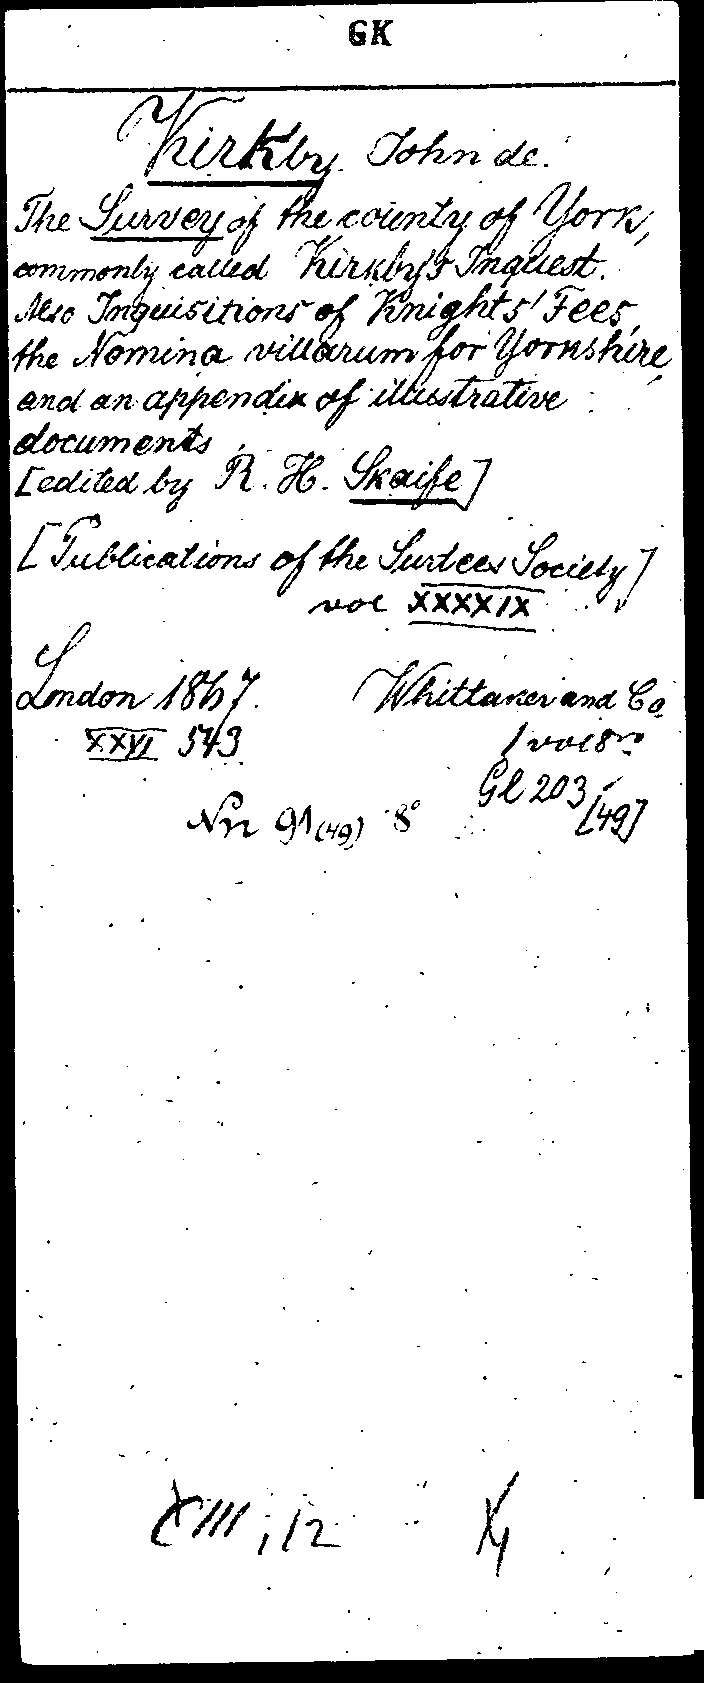 GK
Kirkby John de.
The Survey of the county of York,
commonly called Kirkby's Inquest.
Also Inquisitions of Knights' Fees,
the Nomina villarum for Yorkshire,
and an appendix of illustrative
documents
[edited by R. H. Skaife]
[Publications of the Surtees Society]
vol XXXXIX
London 1867. Whittaker and Co
XXVI 543 1 vol 8vo
Gl 203
[49]
Nn 91 (49) 8°
XIII, 12